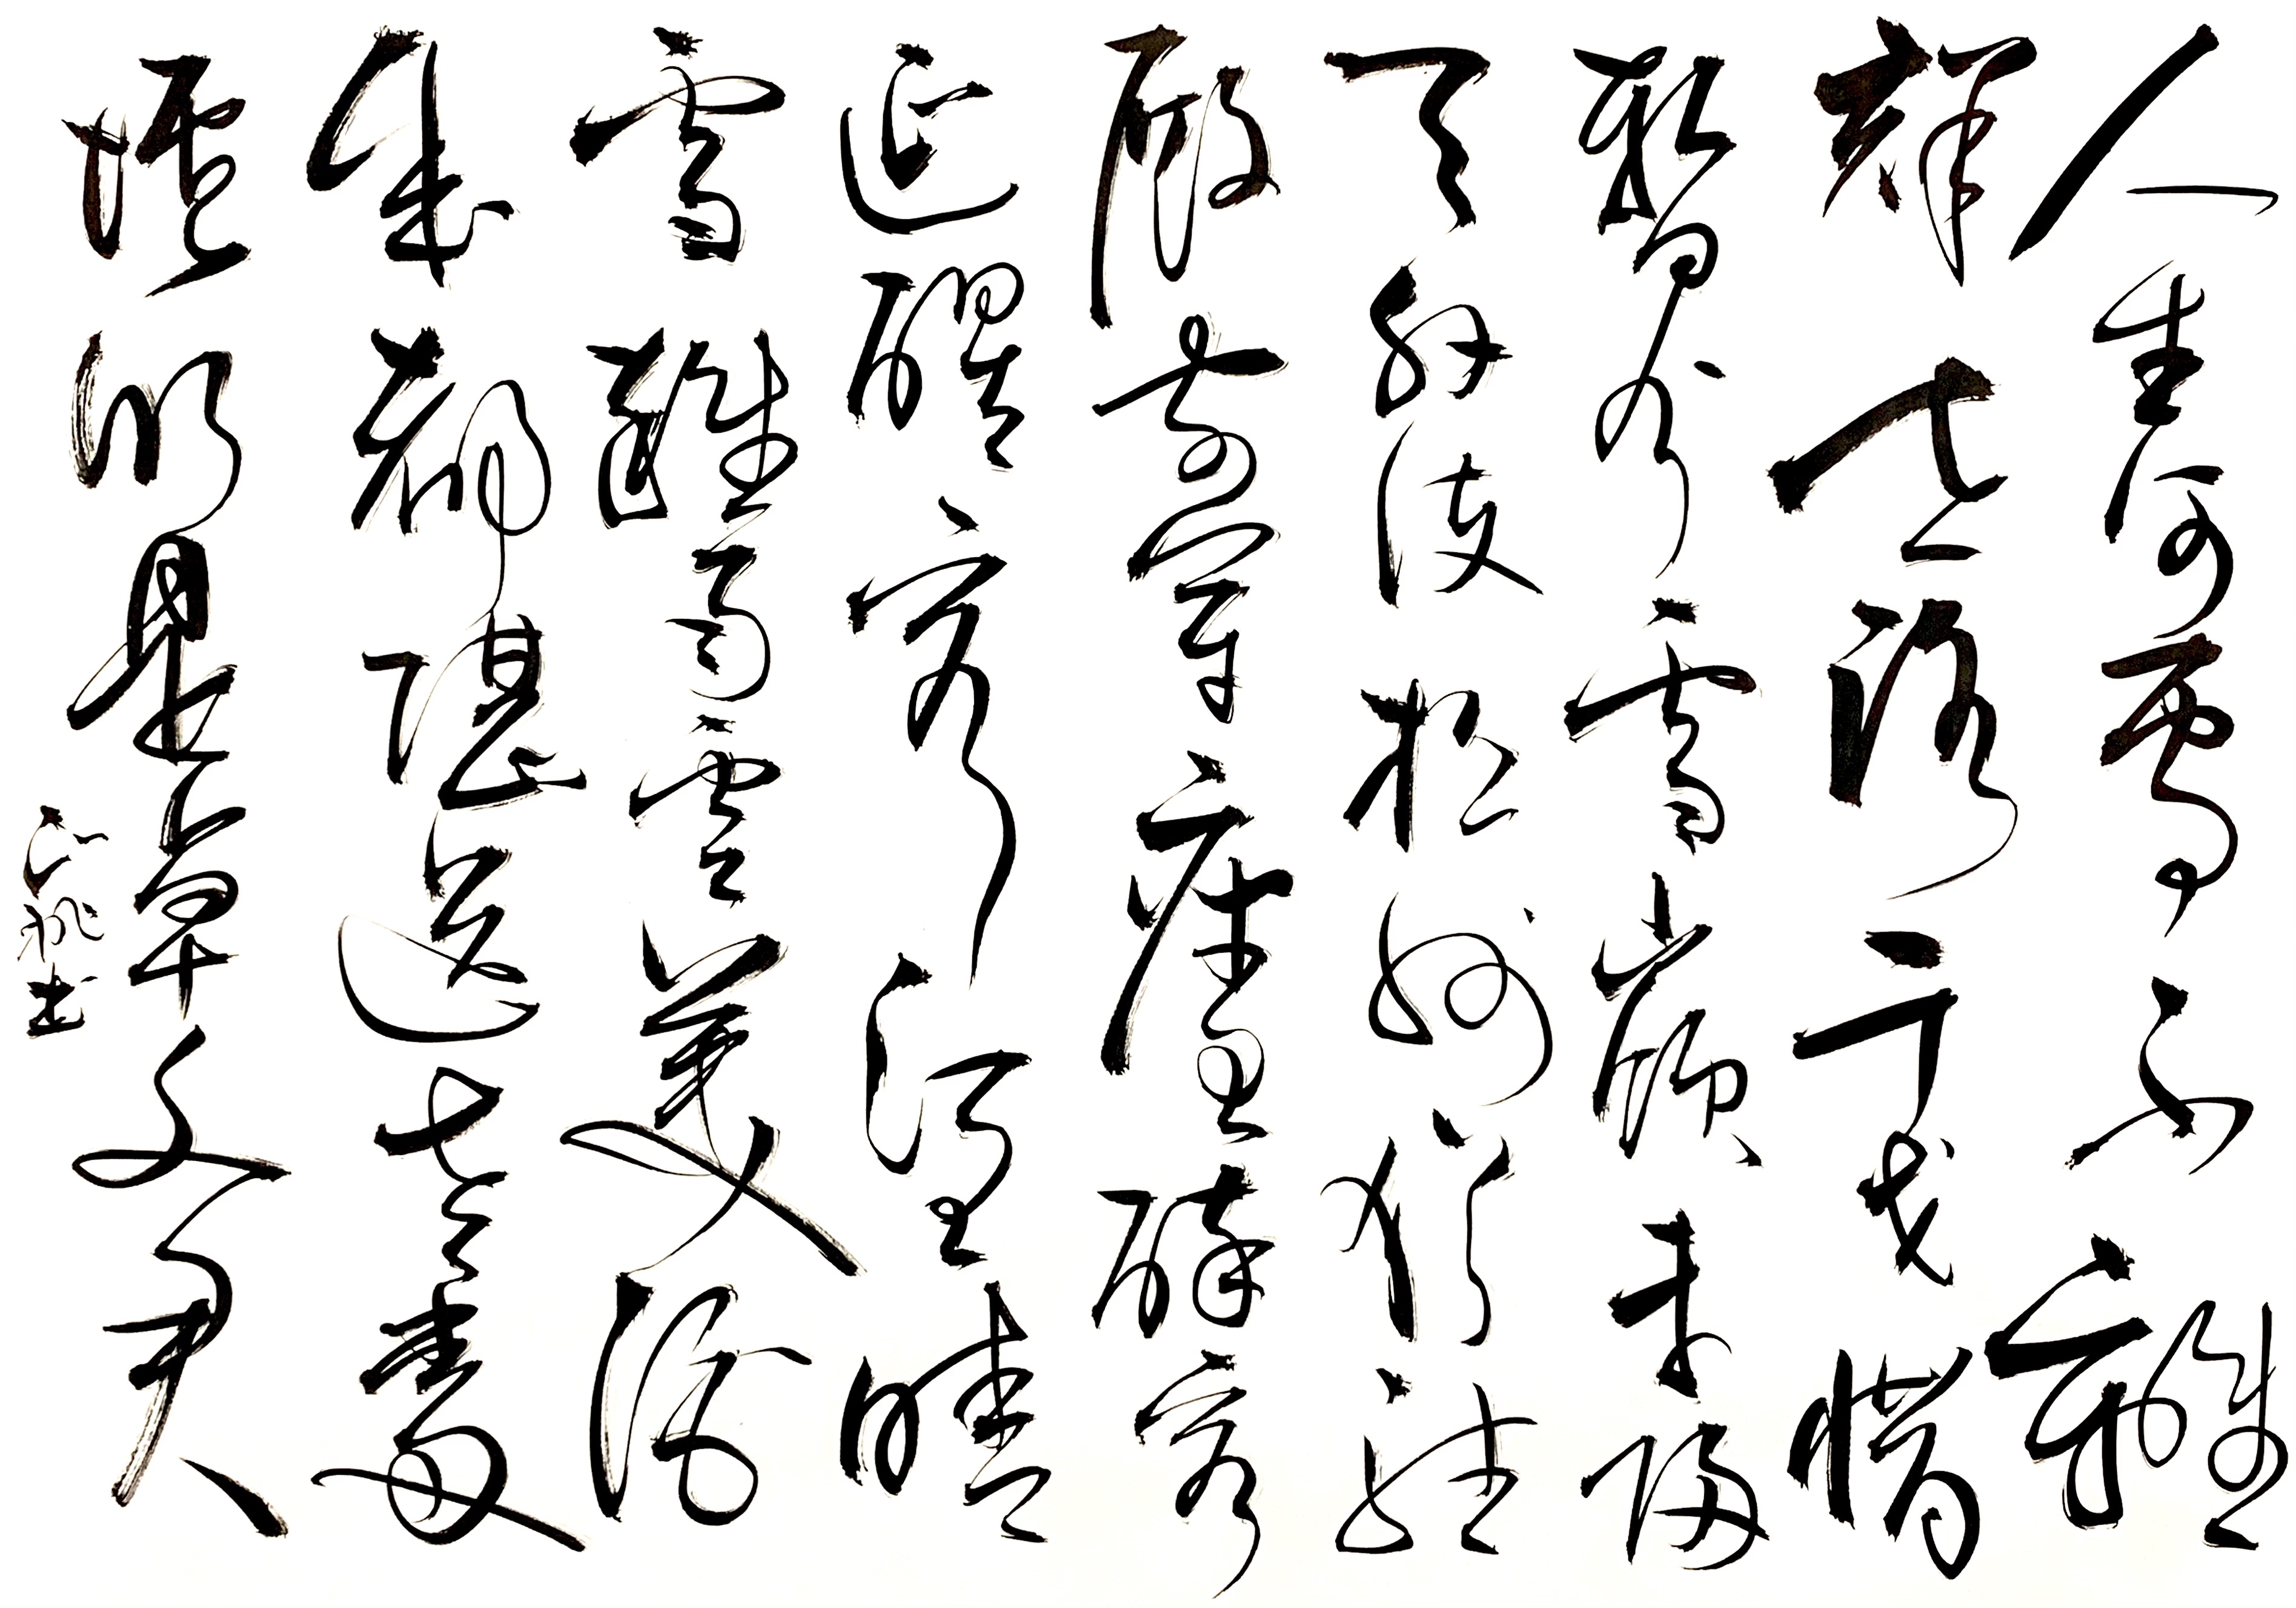 人生何處不離
群世路干戈惜
暫分雪嶺未歸
天外使松州猶駐
殿前軍座中醉客
延醒客江上晴
雲雜雨雲美酒
成都堪送老當
壚仍是卓文君
書